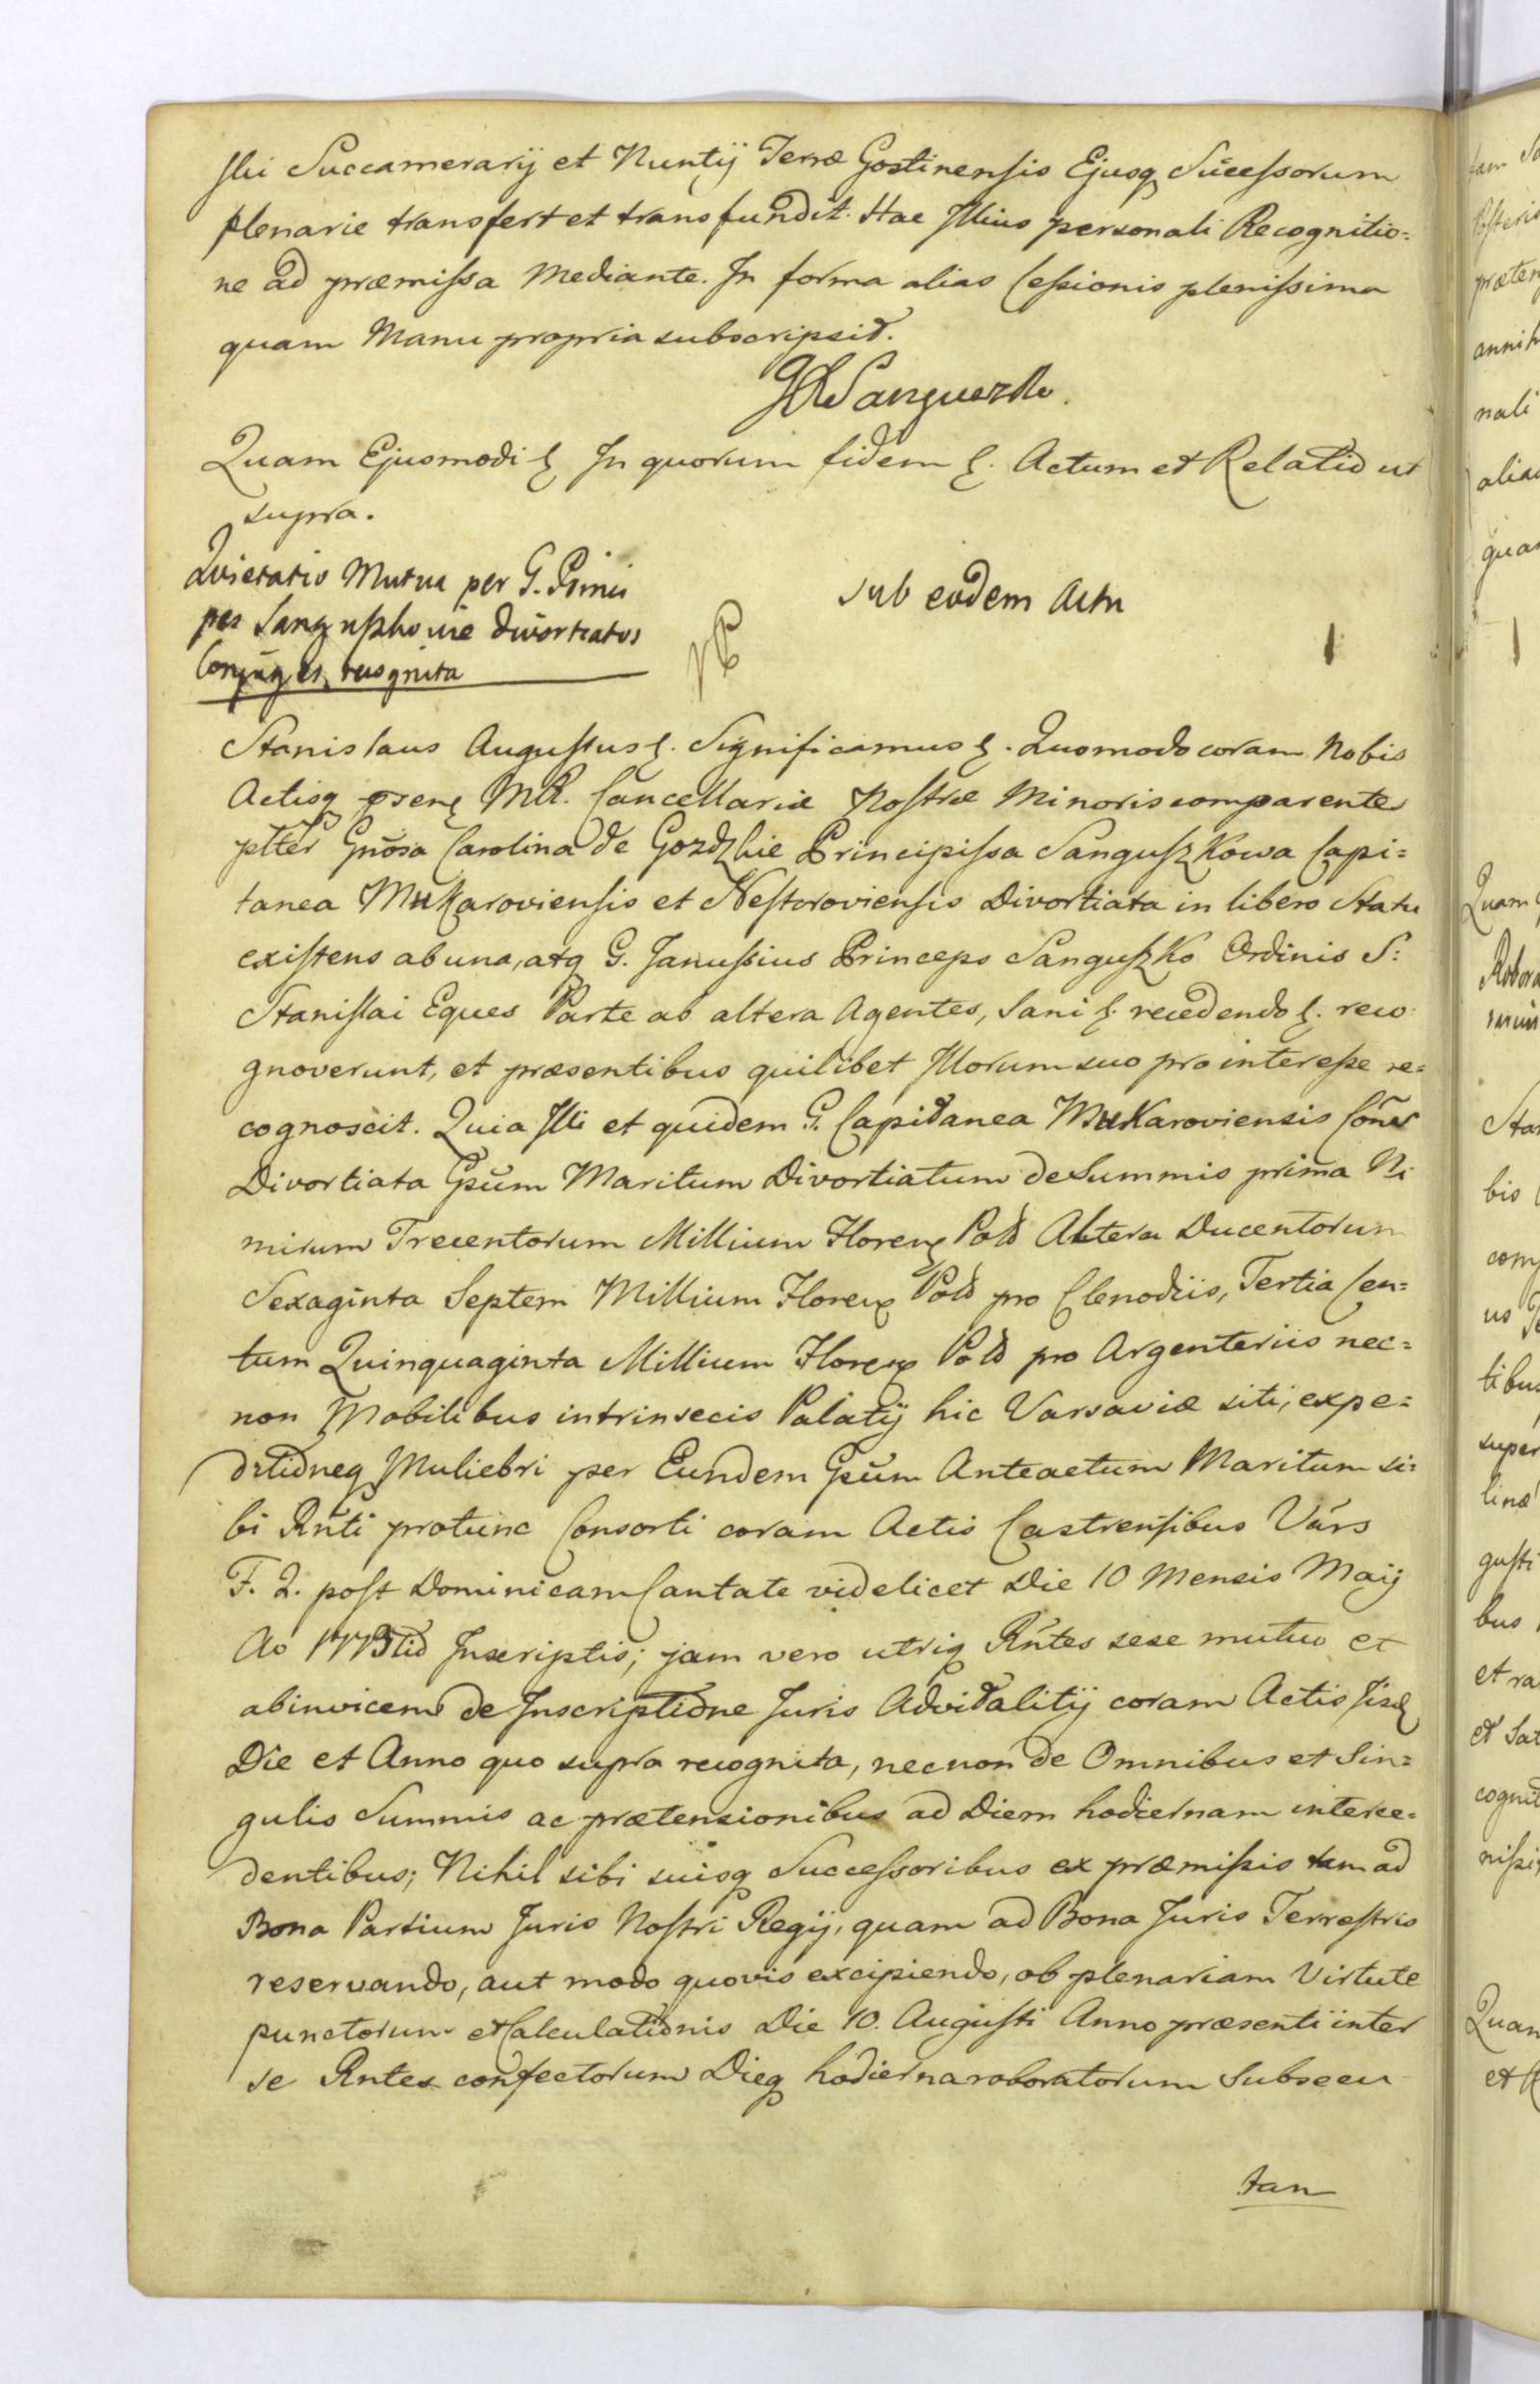 ski Succamerarij et Nuntij Terræ Gostinensis Ejusq Sucessorum
plenarie transfert et transfundit. Hac Illius personali Recognitio=
ne ad præmissa Mediante. In forma alias Cessionis plenissima
quam Manu propria subscripsit.
Quam Ejusmodi &. In quorum fidem &. Actum et Relatio ut
supra.
Quietatio Mutua per G. Princi
pes Sanguszkowie divortiatos
Conjuges recognita
Sub eodem Actu
Stanislaus Augustus &. Significamus &. Quomodo coram Nobis
Actisq præn MR. Cancellariæ Nostræ Minoris comparentes
plter Gnosa Carolina de Gozdzkie Principissa Sanguszkowa Capi=
tanea Mukaroviensis et Nestoroviensis Divortiata in libero Statu
existens ab una, atq G. Janussius Princeps Sanguszko Ordinis S:
Stanislai Eques Parte ab altera Agentes, Sani &. recedendo &. reco
gnoverunt, et præsentibus quilibet Illorum suo pro interesse re=
cognoscit. Quia Illi et quidem G. Capitanea Mukaroviensis Cons
Divortiata Gsum Maritum Divortiatum de Summis prima Ni
mirum Trecentorum Millium Floren Pold Altera Ducentorum
Sexaginta Septem Millium Floren Pold pro Clenodiis, Tertia Cen=
tum Quinquaginta Millium Floren Pold pro Argenteriis nec=
non Mobilibus intrinsecis Palatij hic Varsaviæ siti, expe=
ditioneq Muliebri per Eundem Gsum Anteactum Maritum si=
bi Rnti protunc Consorti coram Actis Castrensibus Vars
F. 2. post Dominicam Cantate videlicet Die 10 Mensis Maij
Ao 1773tio Inscriptis; jam vero utriq Rntes sese mutuo et
abinvicem de Inscriptione Juris Advitalitij coram Actis Iisd
Die et Anno quo supra recognita, necnon de Omnibus et Sin=
gulis Summis ac prætensionibus ad Diem hodiernam interce=
dentibus; Nihil sibi suisq Successoribus ex præmissis tam ad
Bona Partium Juris Nostri Regij, quam ad Bona Juris Terrestris
reservando, aut modo quovis excipiendo, ob plenariam Virtute
punctorum et Calculationis Die 10. Augusti Anno præsenti inter
se Rntes confectorum Dieq hodierna roboratorum Subsecu
tam